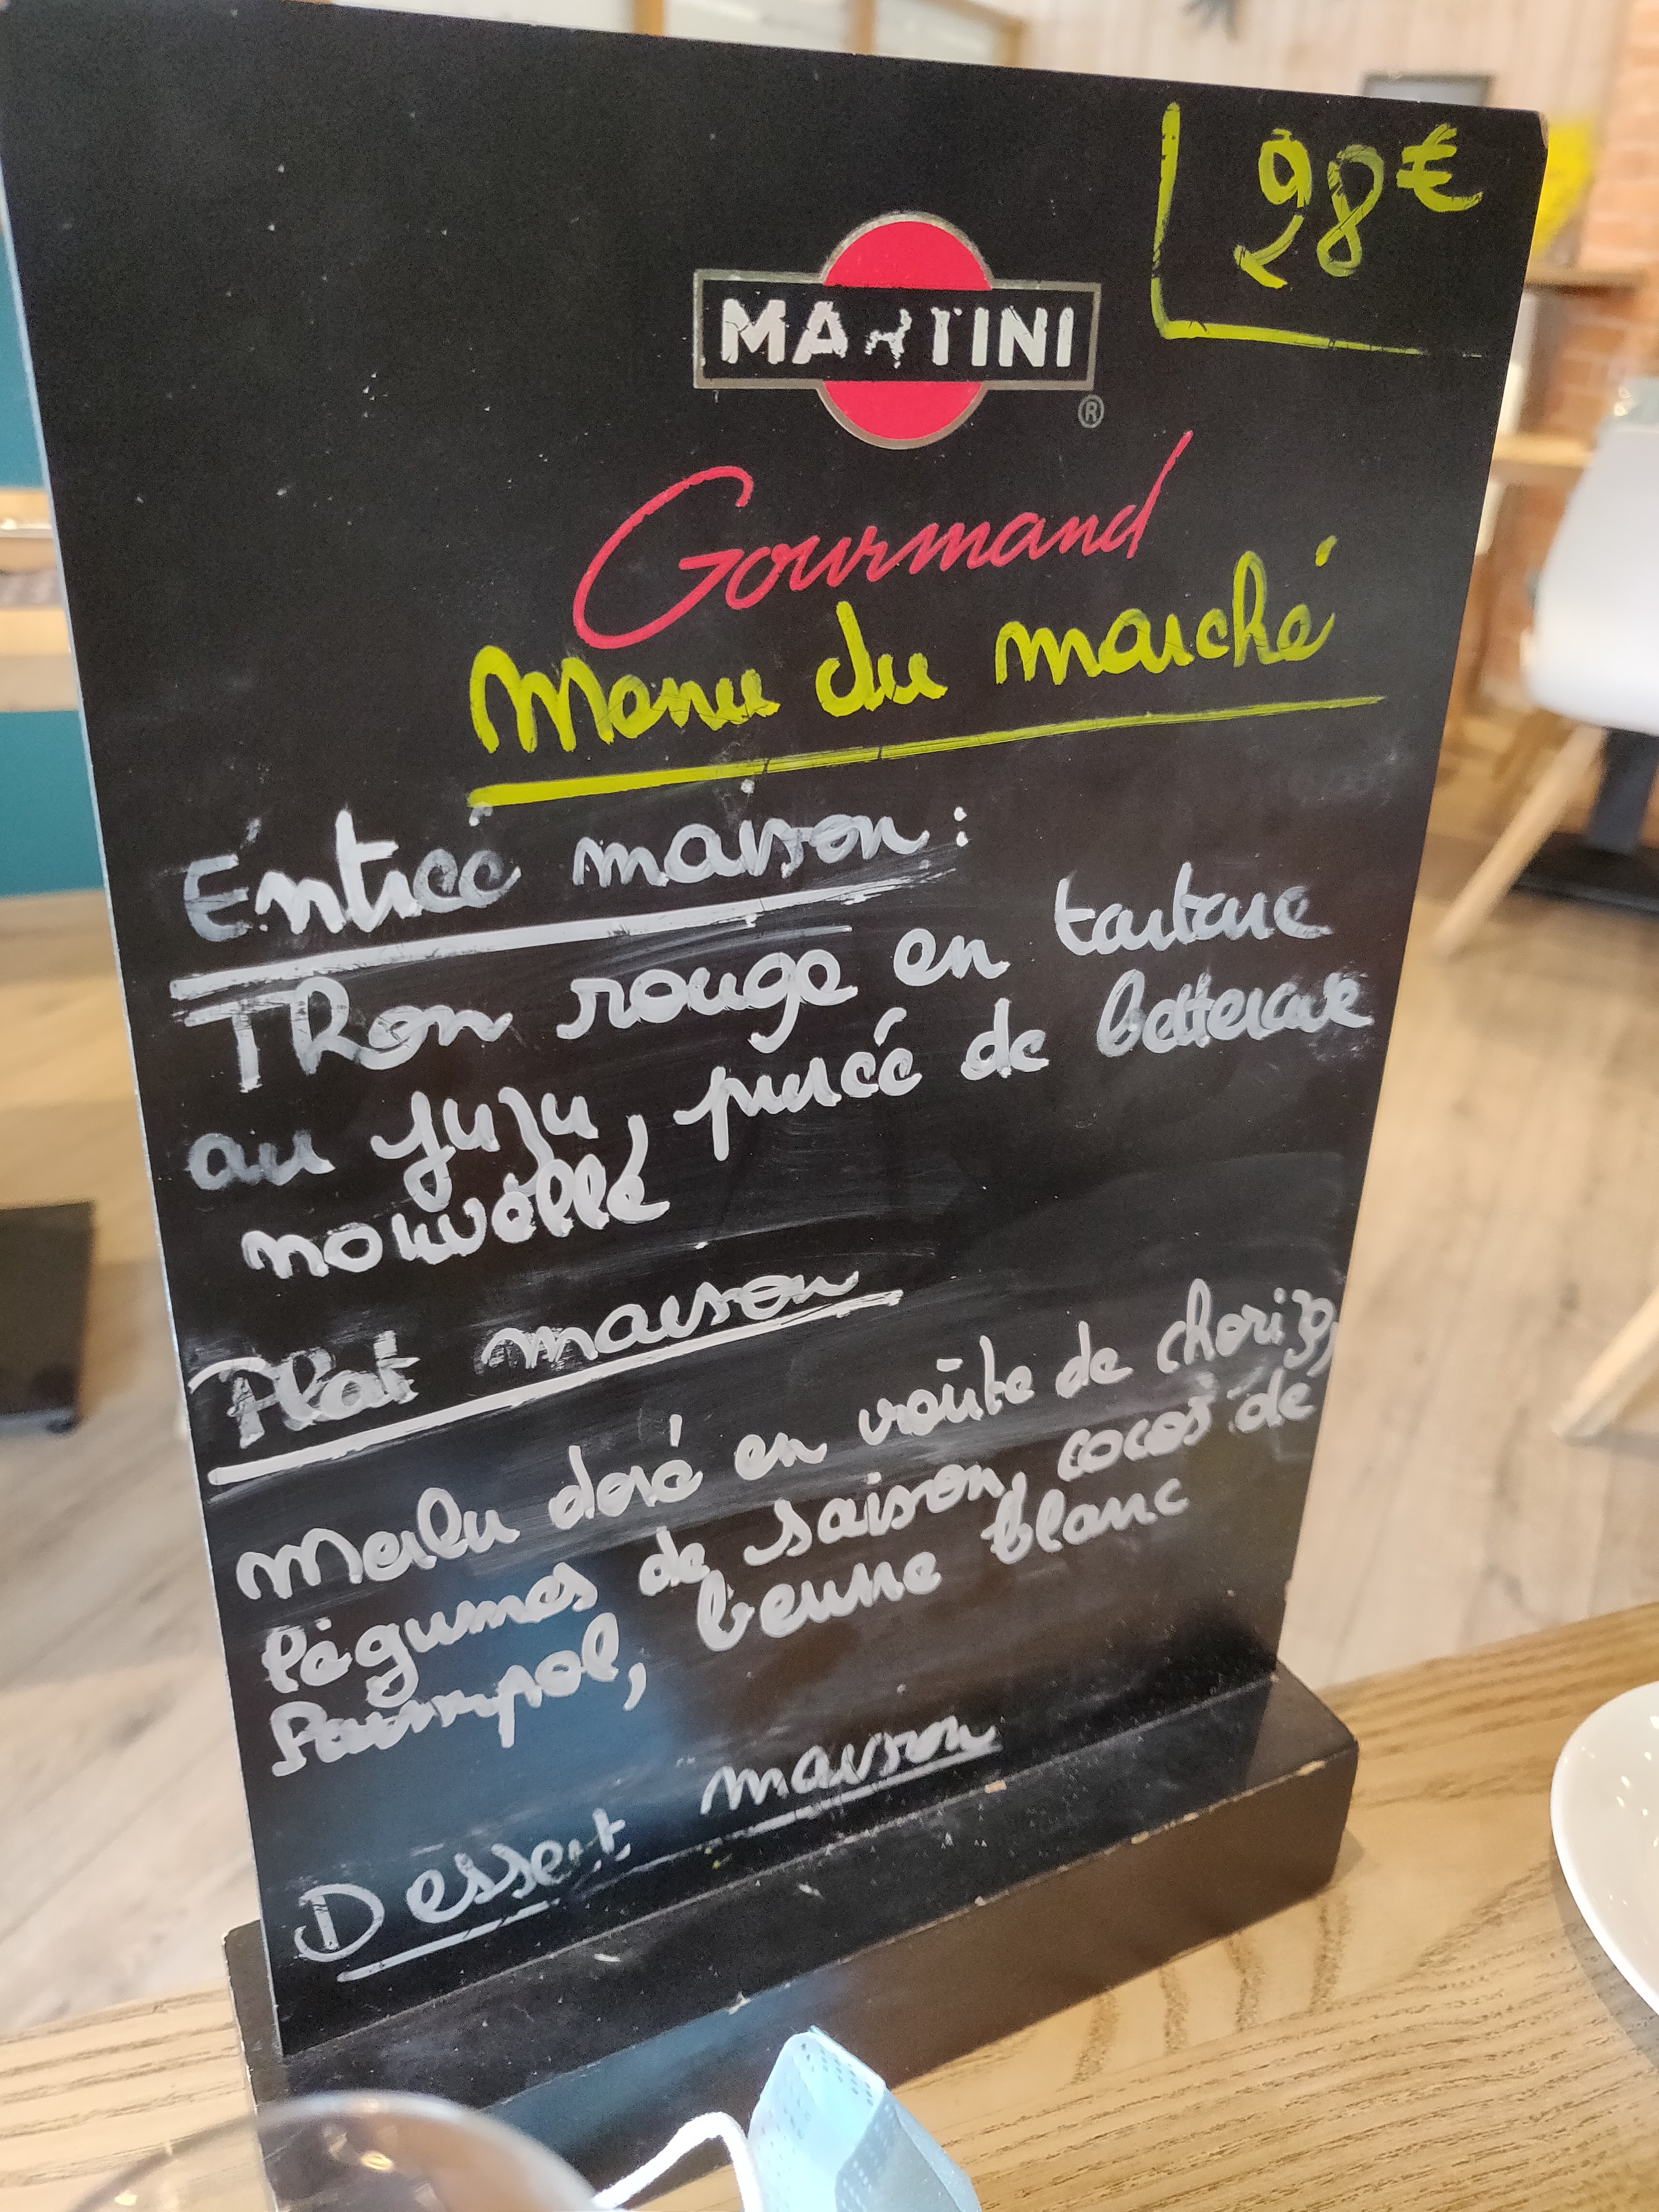 28€
MARTINI
®
Gourmand
Menu du marché
Entrée maison :
Thon rouge en tartare
au yuzu, purée de betterave
nouvelle
Plat maison
Merlu doré en voûte de chorizo,
légumes de saison, cocos de
Paimpol, beurre blanc
Dessert maison